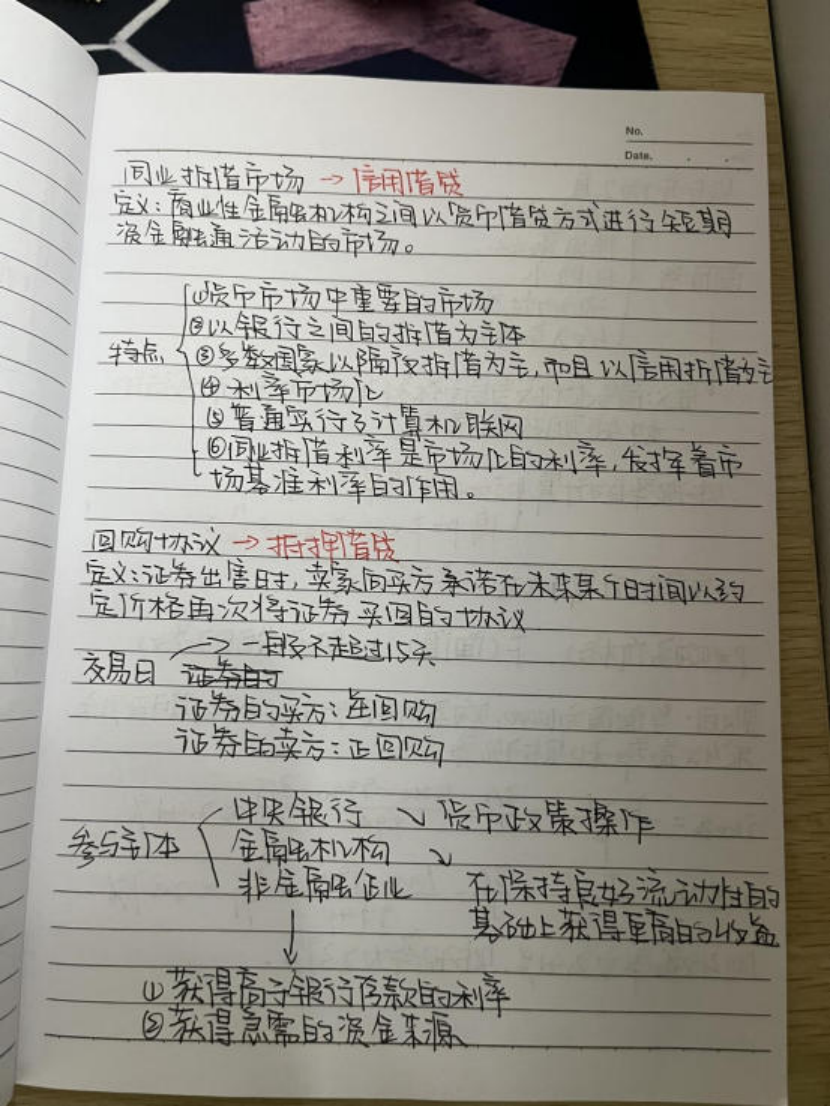 No.
Date.
同业拆借市场 → 信用借贷
定义：商业性金融机构之间以货币借贷方式进行短期
资金融通活动的市场。
①货币市场中重要的市场
②以银行之间的拆借为主体
特点 ③多数国家以隔夜拆借为主，而且以信用拆借为主
④利率市场化
⑤普遍实行了计算机联网
⑥同业拆借利率是市场化的利率，发挥着市
场基准利率的作用。
回购协议 → 抵押借贷
定义：证券出售时，卖家向买方承诺在未来某个时间以约
定价格再次将证券买回的协议
→ 一般不超过15天
交易日 证券的
证券的买方：逆回购
证券的卖方：正回购
中央银行 ↘ 货币政策操作
参与主体 金融机构 ↘
非金融企业 在保持良好流动性的
基础上获得更高的收益
↓
①获得高于银行存款的利率
②获得急需的资金来源